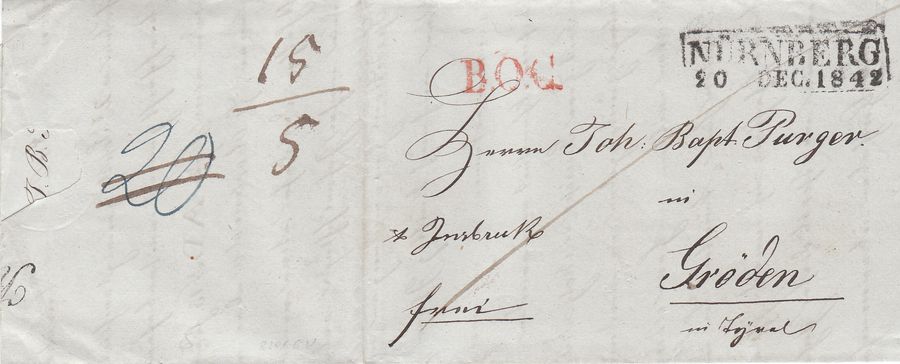 15
5
20
B.O.C.
NÜRNBERG
20 DEC. 1842
Herrn Joh: Bapt. Purger.
in
Insbruk
Gröden
frei
in Tyrol